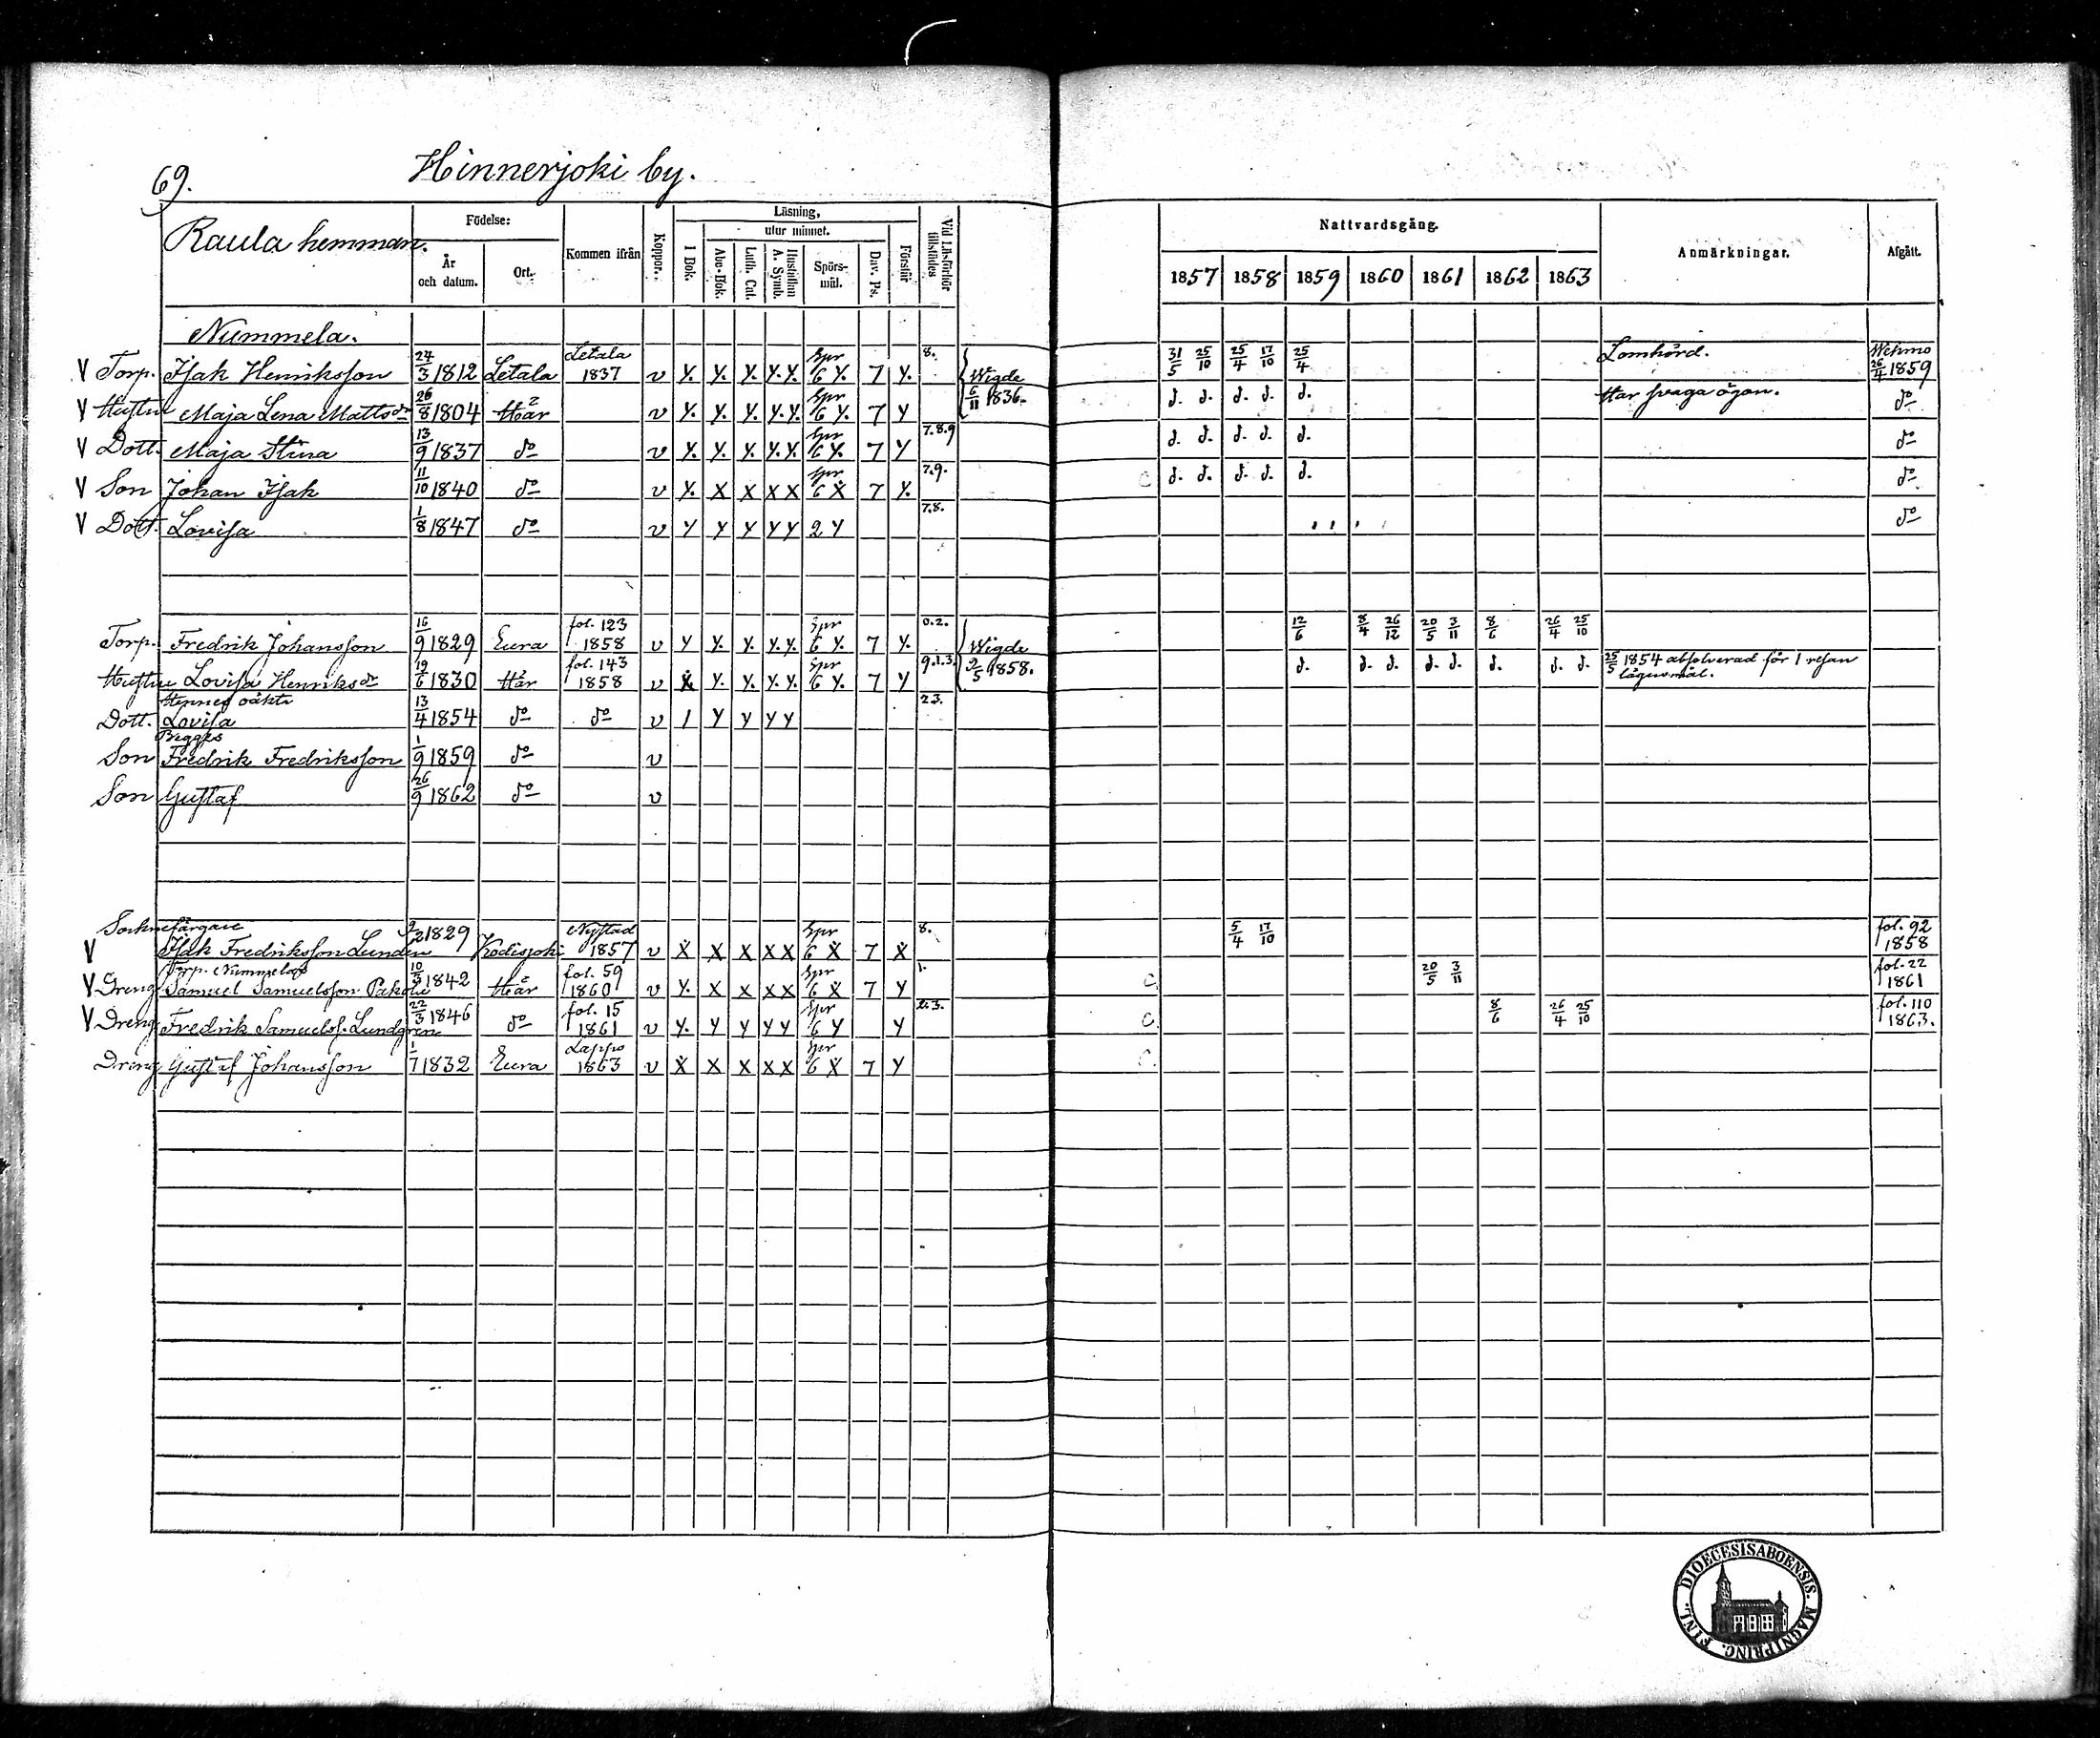 69. Hinnerjoki by.
Raula hemman. Födelse: År och datum. Ort. Kommen ifrån Koppor. Läsning, I Bok. utur minnet. Abc-Bok. Luth. Cat. Hustaflan A. Symb. Spörsmål. Dav. Ps. Förstår Vid Läsförhör tillstädes Nattvardsgång. 1857 1858 1859 1860 1861 1862 1863 Anmärkningar. Afgått.
Nummela.
V Torp. Isak Henriksson 24/3 1812 Letala Letala 1837 v Y. Y. Y. Y. Y. Spr 6 Y. 7 Y. 8. Wigde 6/11 1836. 31/5 25/10 25/4 17/10 25/4 Lomhörd. Wehmo 26/4 1859
V Hustru Maja Lena Mattsdr 26/8 1804 Här v Y. Y. Y. Y. Y. Spr 6 Y. 7 Y d. d. d. d. d. Har svaga ögon. do
V Dott. Maja Stina 13/9 1837 do v Y. Y. Y. Y. Y. Spr 6 Y. 7 Y 7.8.9 d. d. d. d. d. do
V Son Johan Isak 11/10 1840 do v Y. X X X X Spr 6 X 7 Y. 7.9. d. d. d. d. d. do
V Dott. Lovisa 1/8 1847 do v Y Y Y Y Y 2 Y 7.8. do
Torp. Fredrik Johansson 16/9 1829 Eura fol. 123 1858 v Y Y. Y. Y. Y. Spr 6 Y. 7 Y. 0.2. Wigde 2/5 1858. 12/6 8/4 26/12 20/5 3/11 8/6 26/4 25/10
Hustru Lovisa Henriksdr 19/6 1830 Här fol. 143 1858 v X Y. Y. Y. Y. Spr 6 Y. 7 Y 9.1.3. d. d. d. d. d. d. d. d. 25/5 1854 absolverad för 1 resan lägersmål.
Hennes oäkta
Dott. Lovisa 13/4 1854 do do v 1 Y Y Y Y 2.3.
Begges
Son Fredrik Fredriksson 1/9 1859 do v
Son Gustaf 26/9 1862 do v
Socknefärgare
V Isak Fredriksson Lunden 9/2 1829 Kodisjoki Nystad 1857 v X X X X X Spr 6 X 7 X 8. 5/4 17/10 fol. 92 1858
Torp. Nummelas
V Dreng Samuel Samuelsson 10/3 1842 Här fol. 59 1860 v Y. X X X X Spr 6 X 7 Y 1. C. 20/5 3/11 fol. 22 1861
V Dreng Fredrik Samuelss. Lundgren 22/3 1846 do fol. 15 1861 v Y. Y Y Y Y Spr 6 Y Y C. 8/6 26/4 25/10 fol. 110 1863.
Dreng Gustaf Johansson 1/7 1832 Eura Lappo 1863 v X X X X X Spr 6 X 7 Y C.
DIOECESIS ABOENSIS. MAGNI PRINC. FINL.